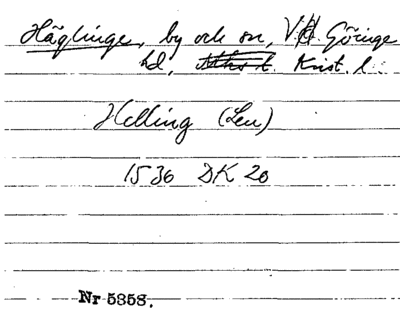 Häglinge, by och sn, V. Göinge
hd, Krist. l.
Helling (Len)
1536 DK 20
Nr 5358.